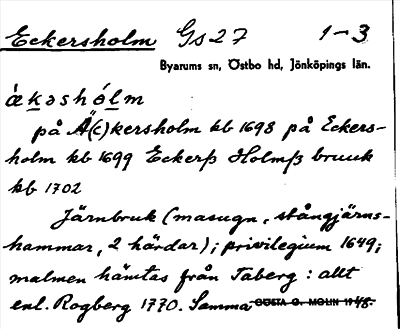 Eckersholm Gs 27 1-3
Byarums sn, Östbo hd, Jönköpings län.
ǻkəshólm
på Ä(c)kersholm kb 1698 på Eckers-
holm kb 1699 Eckerß Holmß bruuk
kb 1702
Järnbruk (masugn, stångjärns-
hammar, 2 härdar); privilegium 1649;
malmen hämtas från Taberg: allt
enl. Rogberg 1770. Samma GÖSTA G. MOLIN 1948.